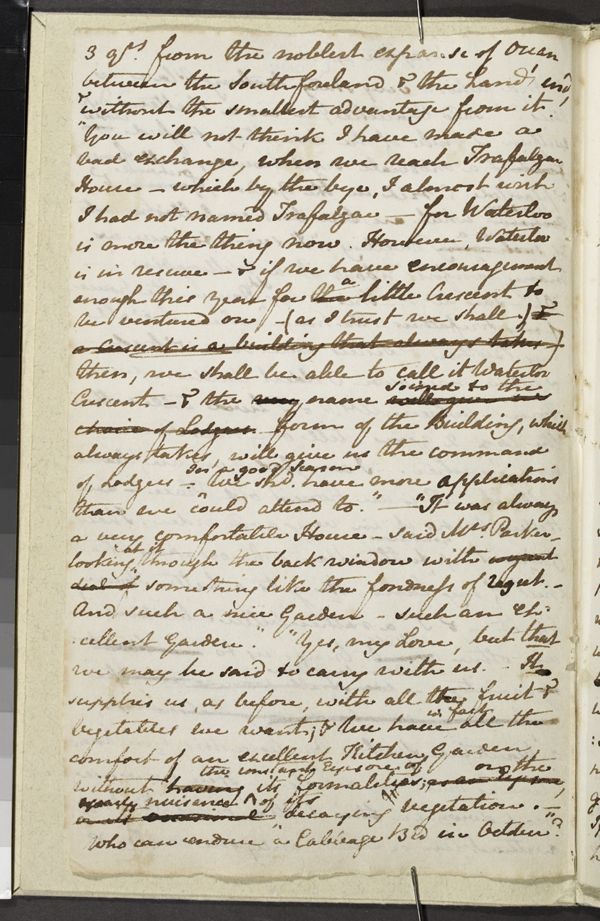 3 qrs. from the noblest expanse of Ocean
between the Southforeland & the Land's end,
& without the smallest advantage from it.
"You will not think I have made a
bad exchange, when we reach Trafalgar
House – which by the bye, I almost wish
I had not named Trafalgar – for Waterloo
is more the thing now. However, Waterloo
is in reserve – & if we have encouragement
enough this year for the a little Crescent to
be ventured on – (as I trust we shall) &
a Crescent is a building that always takes)
then, we shall be able to call it Waterloo
Crescent – & the name joined to the
choice of Lodgers form of the Building, which
always takes, will give us the command
of Lodgers –. In a good Season
We shd. have more applications
than we could attend to." – "It was always
a very comfortable House – said Mrs. Parker –
looking at it through the back window with
deal of something like the fondness of regret. –
And such a nice Garden – such an Ex-
-cellent Garden." "Yes, my Love, but that
we may be said to carry with us. – It
supplies us, as before, with all the fruit &
vegetables we want; & We have in fact all the
comfort of an excellent Kitchen Garden,
without having the constant Eyesore of its formalities; or the
yearly nuisance of its decaying vegetation. –
Who can endure a Cabbage Bed in October"?